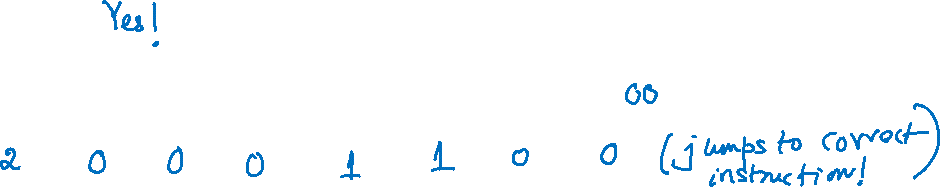 Yes!
00
2 0 0 0 1 1 0 0 (jumps to correct
instruction!)